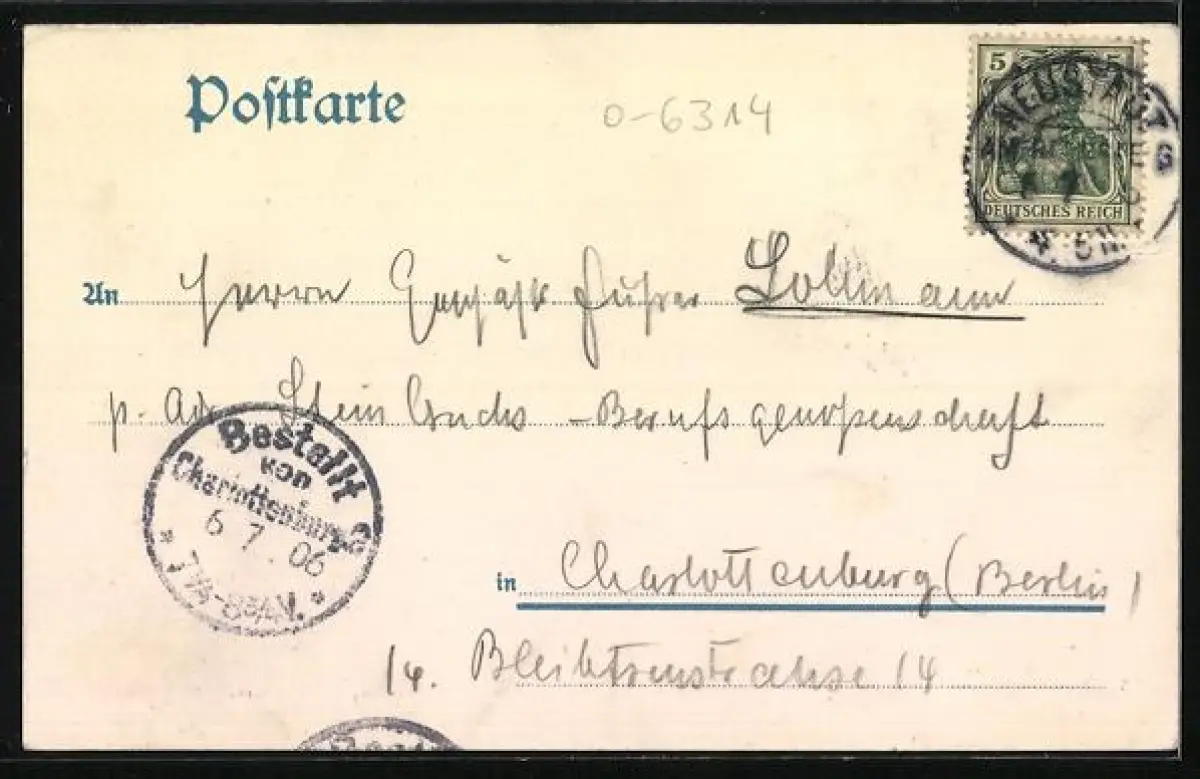 Postkarte
0-6314
5 5
NEUSTADT
DEUTSCHES REICH
An Herrn Geschäftsführer Lollmann
p. Adr. Steinbruchs-Berufsgenossenschaft
Bestellt
von
Charlottenburg 2
6 7. 06
7¼-8¾V.
in Charlottenburg (Berlin)
14. Bleibtreustrahse 14